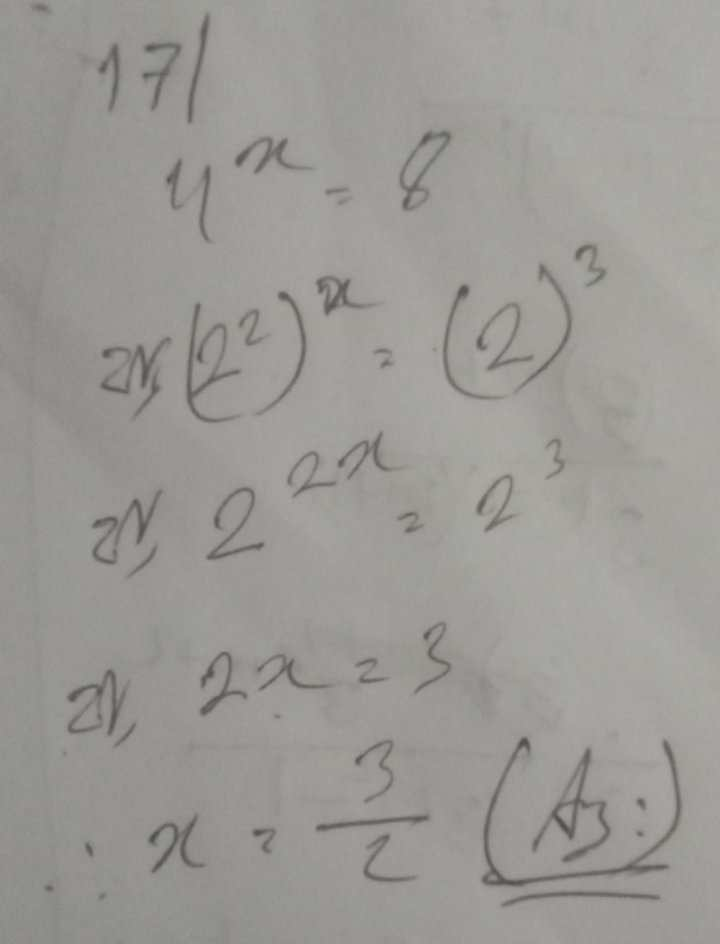 17|
4^x = 8
বা, (2^2)^x = (2)^3
বা, 2^{2x} = 2^3
বা, 2x = 3
∴ x = 3/2 (Ans:)